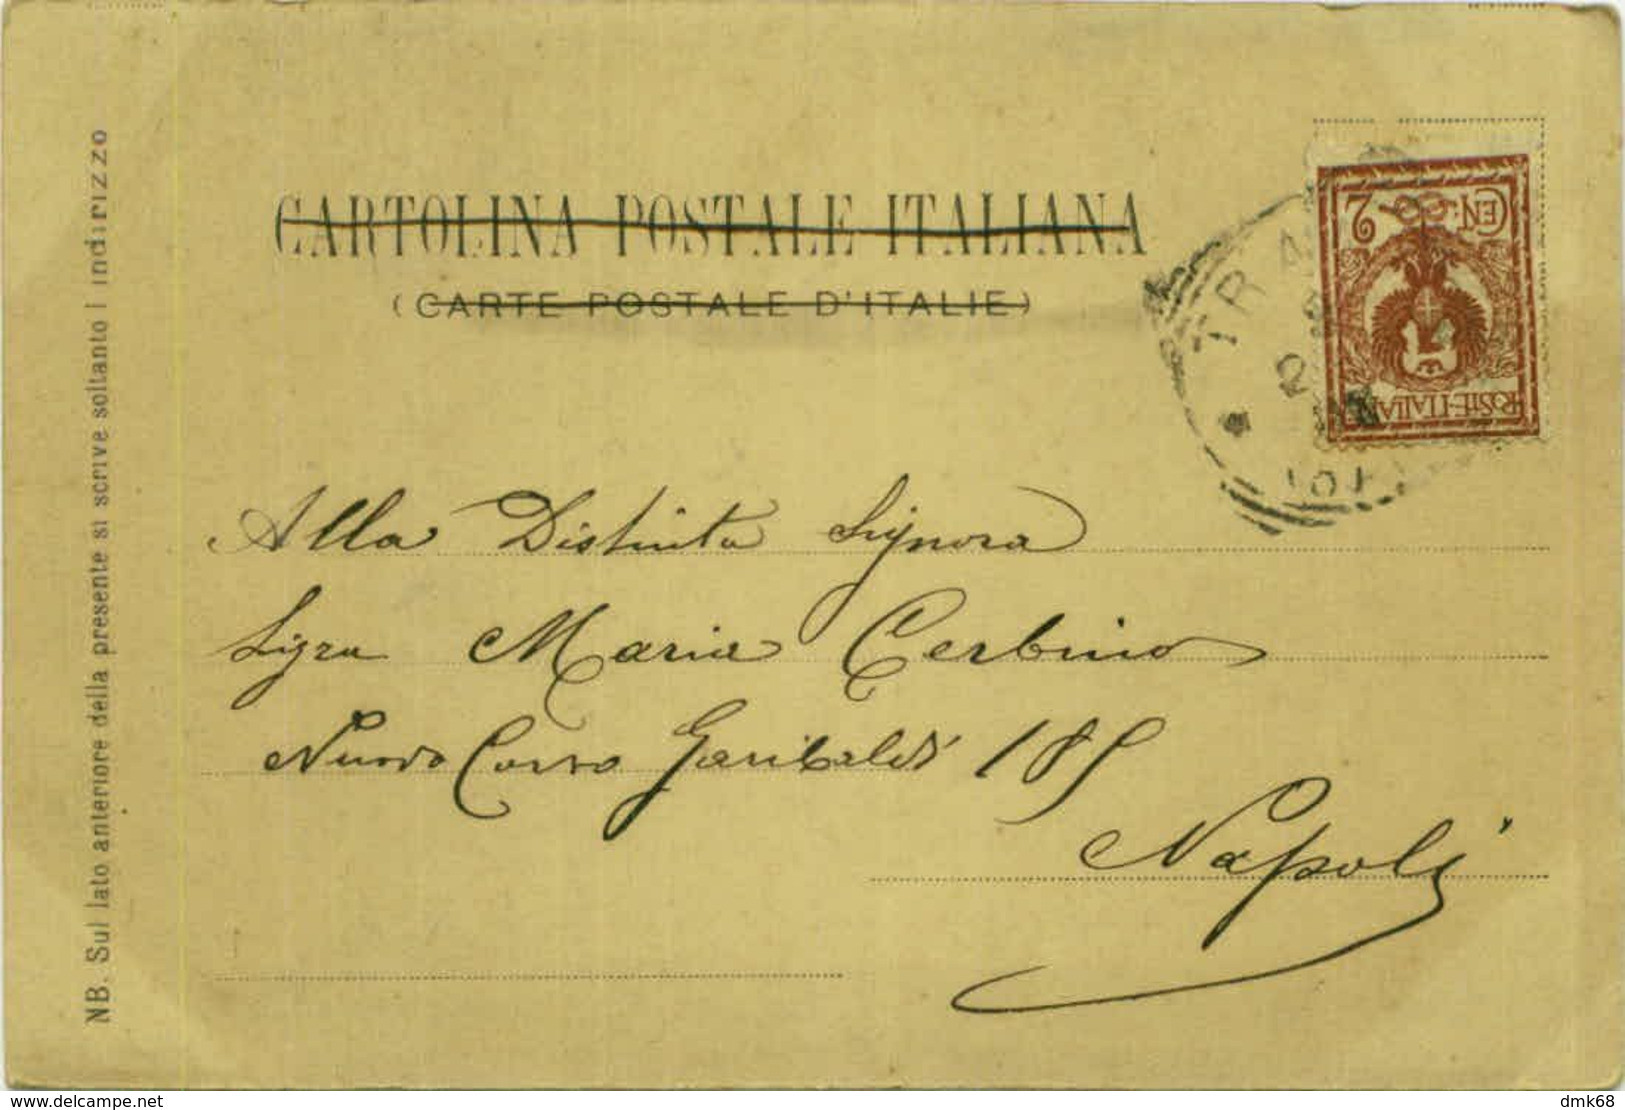 CARTOLINA POSTALE ITALIANA
(CARTE POSTALE D'ITALIE)
CEN: 2
POSTE-ITALIANE
Alla Distinta Signora
Sigra Maria Cerbino
Nuovo Corso Garibaldi 185
Napoli
NB. Sul lato anteriore della presente si scrive soltanto l'indirizzo
delcampe.net
dmk68